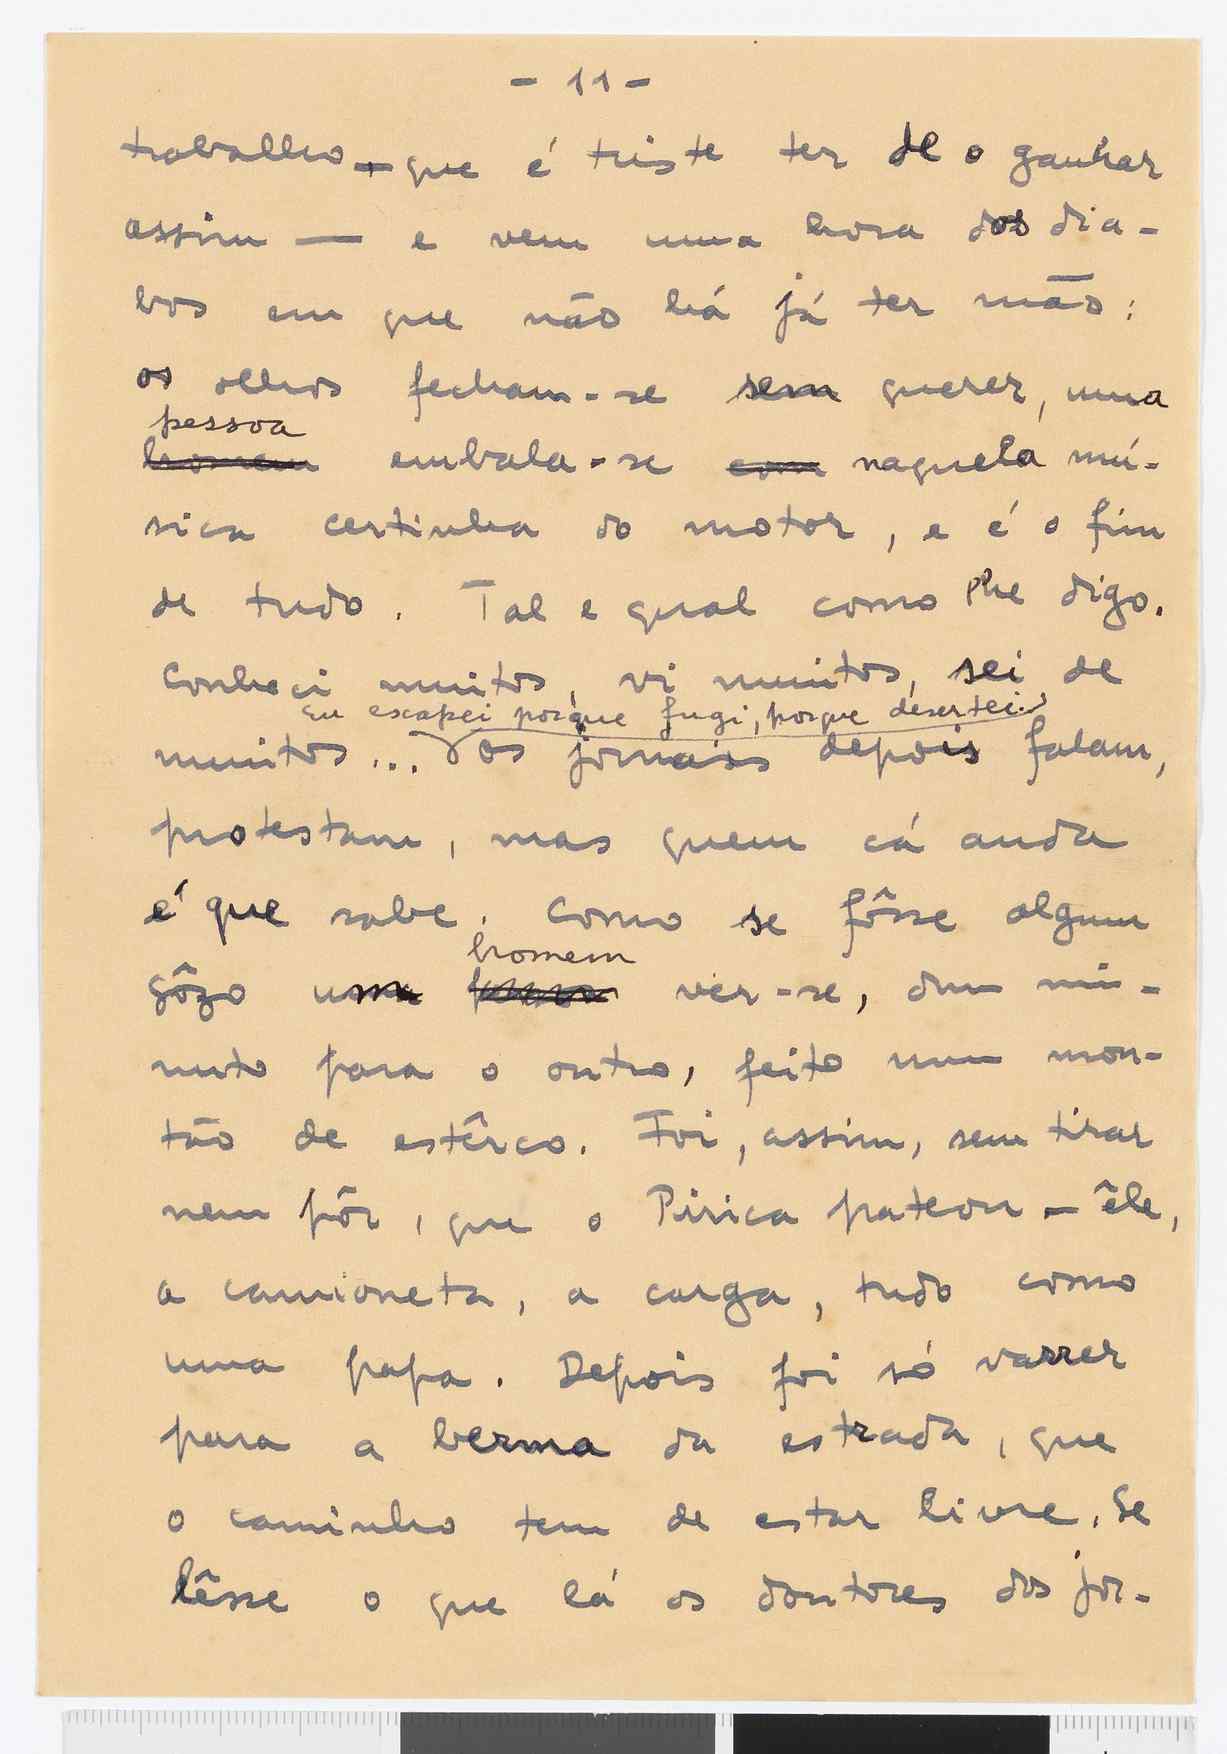 - 11 -
trabalho — que é triste ter de o ganhar
assim — e vem uma hora dos dia-
bos em que não há já ter mão:
os olhos fecham-se sem querer, uma
pessoa
homem embala-se com naquela mú-
sica certinha do motor, e é o fim
de tudo. Tal e qual como lhe digo.
Conheci muitos, vi muitos, sei de
Eu escapei porque fugi, porque desertei...
muitos... Os jornais depois falam,
protestam, mas quem cá anda
é que sabe. Como se fôsse algum
homem
gôzo um ver-se, dum mi-
nuto para o outro, feito num mon-
tão de estêrco. Foi, assim, sem tirar
nem pôr, que o Pirica pateou — êle,
a camioneta, a carga, tudo como
uma papa. Depois foi só varrer
para a berma da estrada, que
o caminho tem de estar livre. Se
lêsse o que lá os doutores dos jor-